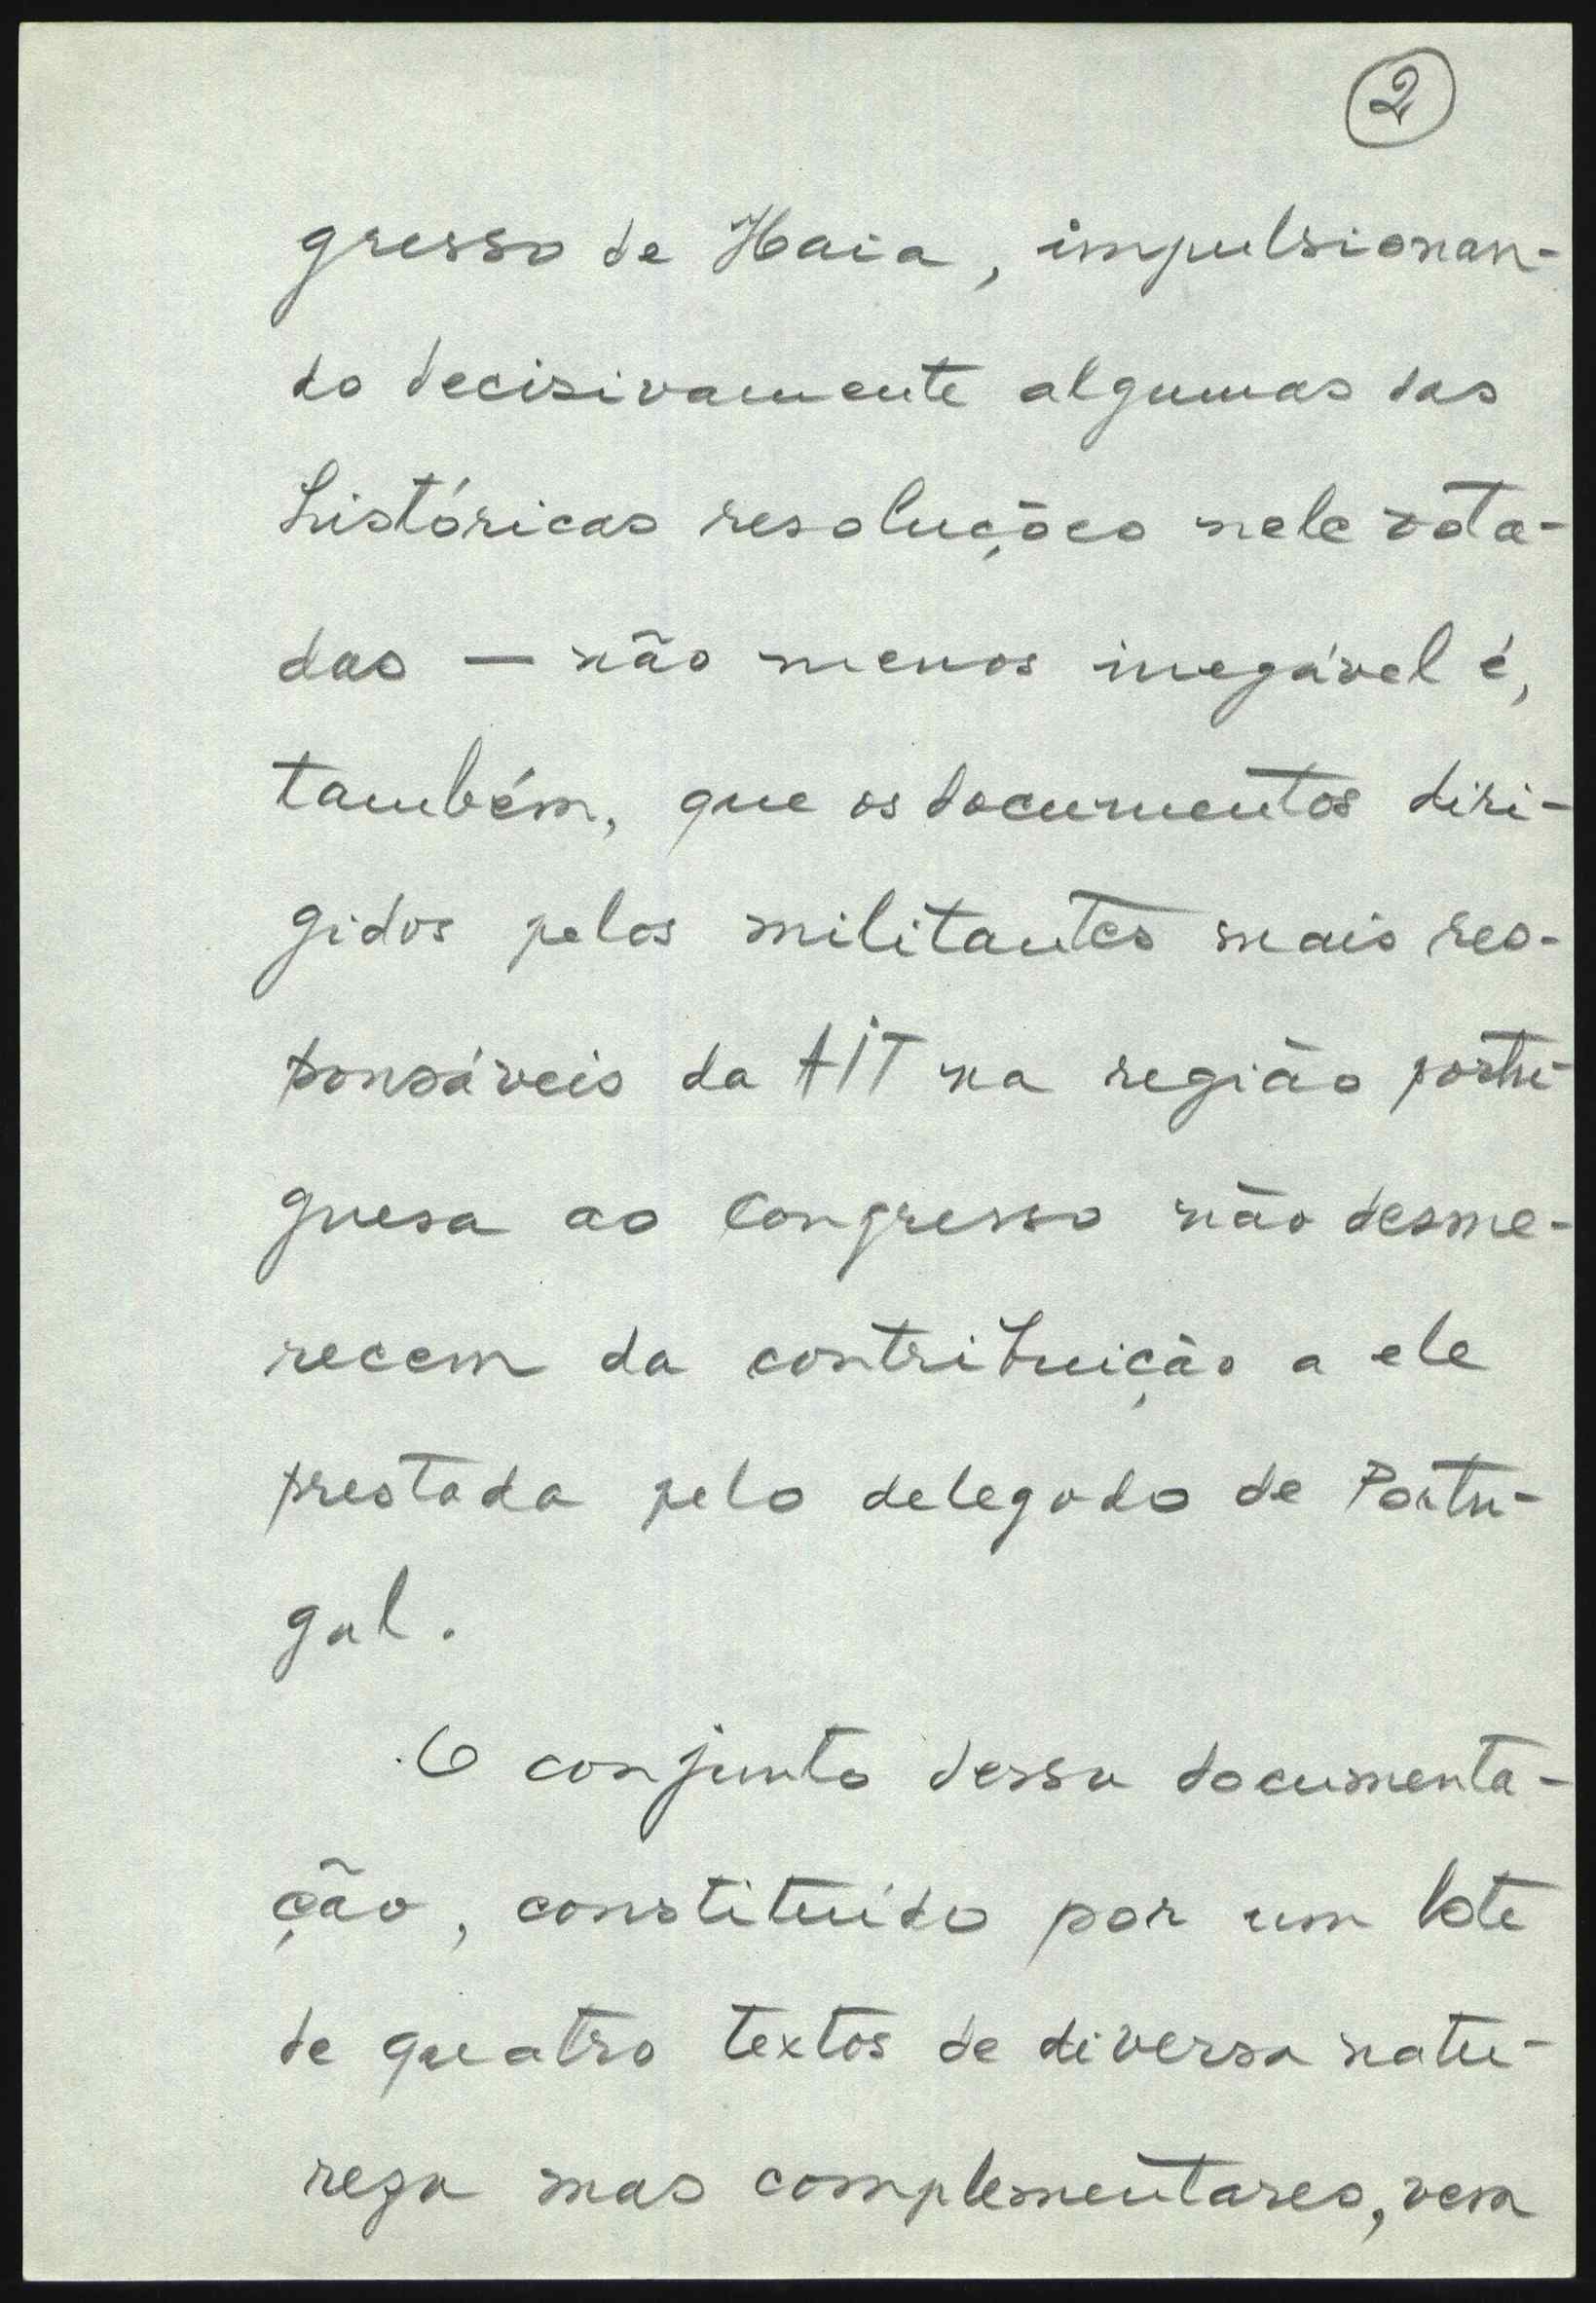 2
gresso de Haia, impulsionan-
do decisivamente algumas das
históricas resoluções nele vota-
das — não menos inegável é,
também, que os documentos diri-
gidos pelos militantes mais res-
ponsáveis da AIT na região portu-
guesa ao Congresso não desme-
recem da contribuição a ele
prestada pelo delegado de Portu-
gal.
O conjunto dessa documenta-
ção, constituído por um lote
de quatro textos de diversa natu-
reza mas complementares, vem